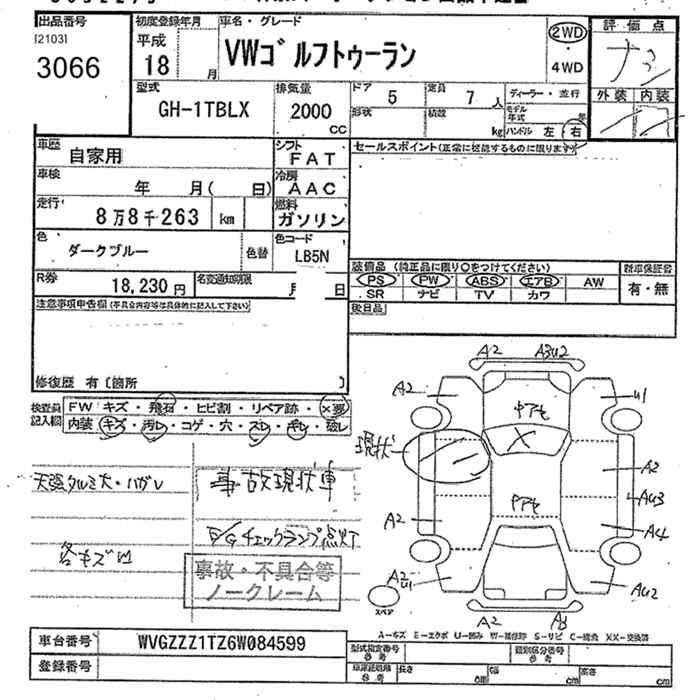 出品番号 初度登録年月 車名・グレード 評価点
[2103] 平成 2WD
3066 18 月 VWゴルフトゥーラン ・
4WD
外装 内装
型式 排気量 ドア 定員 ディーラー・並行
GH-1TBLX 2000 5 7 人 モデル年式 年
cc 形状 積載 kg ハンドル 左 右
車歴 自家用 シフト FAT セールスポイント(正常に機能するものに限ります)
車検 年 月( 日) 冷房 AAC
走行 8万8千263 km 燃料 ガソリン
色 ダークブルー 色替 色コード LB5N
装備品 (純正品に限り○をつけてください) 新車保証書
R券 18,230円 名変通知期限 月 日 PS PW ABS エアB AW 有・無
SR ナビ TV カワ
注意事項申告欄(不具合内容等は具体的に記入して下さい) 後日品
修復歴 有〔箇所 〕
検査員記入欄 FW キズ・飛石・ヒビ割・リペア跡・×要
内装 キズ・汚レ・コゲ・穴・スレ・キレ・破レ
A2 A3U2
A2 U1
現状 A2
天張タルミ大・ハガレ 事故現状車
A2 AU3
A4
E/Gチェックランプ点灯
各キズ凹
事故・不具合等
ノークレーム
A2 U1 AU2
スペア A2
A-キズ E-エクボ U-凹み W-補修跡 S-サビ C-腐食 XX-交換済
車台番号 WVGZZZ1TZ6W084599 型式指定番号 類別区分番号
登録番号 長さ cm 幅 cm 高さ cm